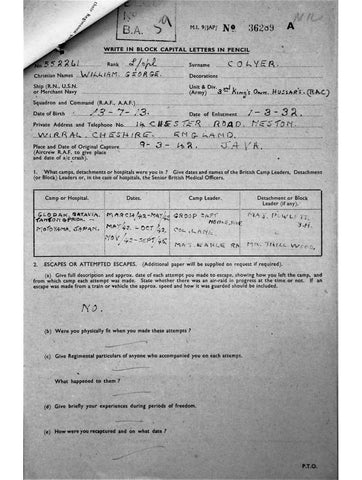 No
B.A. 5a
M.I. 9/JAP/ No 36289 A
WRITE IN BLOCK CAPITAL LETTERS IN PENCIL
No. 552261 Rank L/Cpl Surname COLYER.
Christian Names WILLIAM. GEORGE. Decorations
Ship (R.N., U.S.N. or Merchant Navy Unit & Div. (Army) 3rd KING'S OWN HUSSARS. (RAC)
Squadron and Command (R.A.F., A.A.F.)
Date of Birth 13-7-13. Date of Enlistment 1-3-32.
Private Address and Telephone No. 14 CHESTER ROAD. NESTON.
WIRRAL. CHESHIRE. ENGLAND.
Place and Date of Original Capture 9-3-42. JAVA.
(Aircrew R.A.F. to give place
and date of a/c crash).
1. What camps, detachments or hospitals were you in? Give dates and names of the British Camp Leaders, Detachment
(or Block) Leaders or, in the case of hospitals, the Senior British Medical Officers.
Camp or Hospital. Dates. Camp Leader. Detachment or Block Leader (if any).
GLODAK, BATAVIA. MARCH/42-MAY/42 GROUP CAPT
TANJON PRIOK. MAY/42-OCT/42. COL.
MOTOYAMA, JAPAN. NOV/42-SEPT/45 RA
2. ESCAPES OR ATTEMPTED ESCAPES. (Additional paper will be supplied on request if required).
(a) Give full description and approx. date of each attempt you made to escape, showing how you left the camp, and
from which camp each attempt was made. State whether there was an air-raid in progress at the time or not. If an
escape was made from a train or vehicle the approx. speed and how it was guarded should be included.
NO.
(b) Were you physically fit when you made these attempts?
(c) Give Regimental particulars of anyone who accompanied you on each attempt.
What happened to them?
(d) Give briefly your experiences during periods of freedom.
(e) How were you recaptured and on what date?
P.T.O.